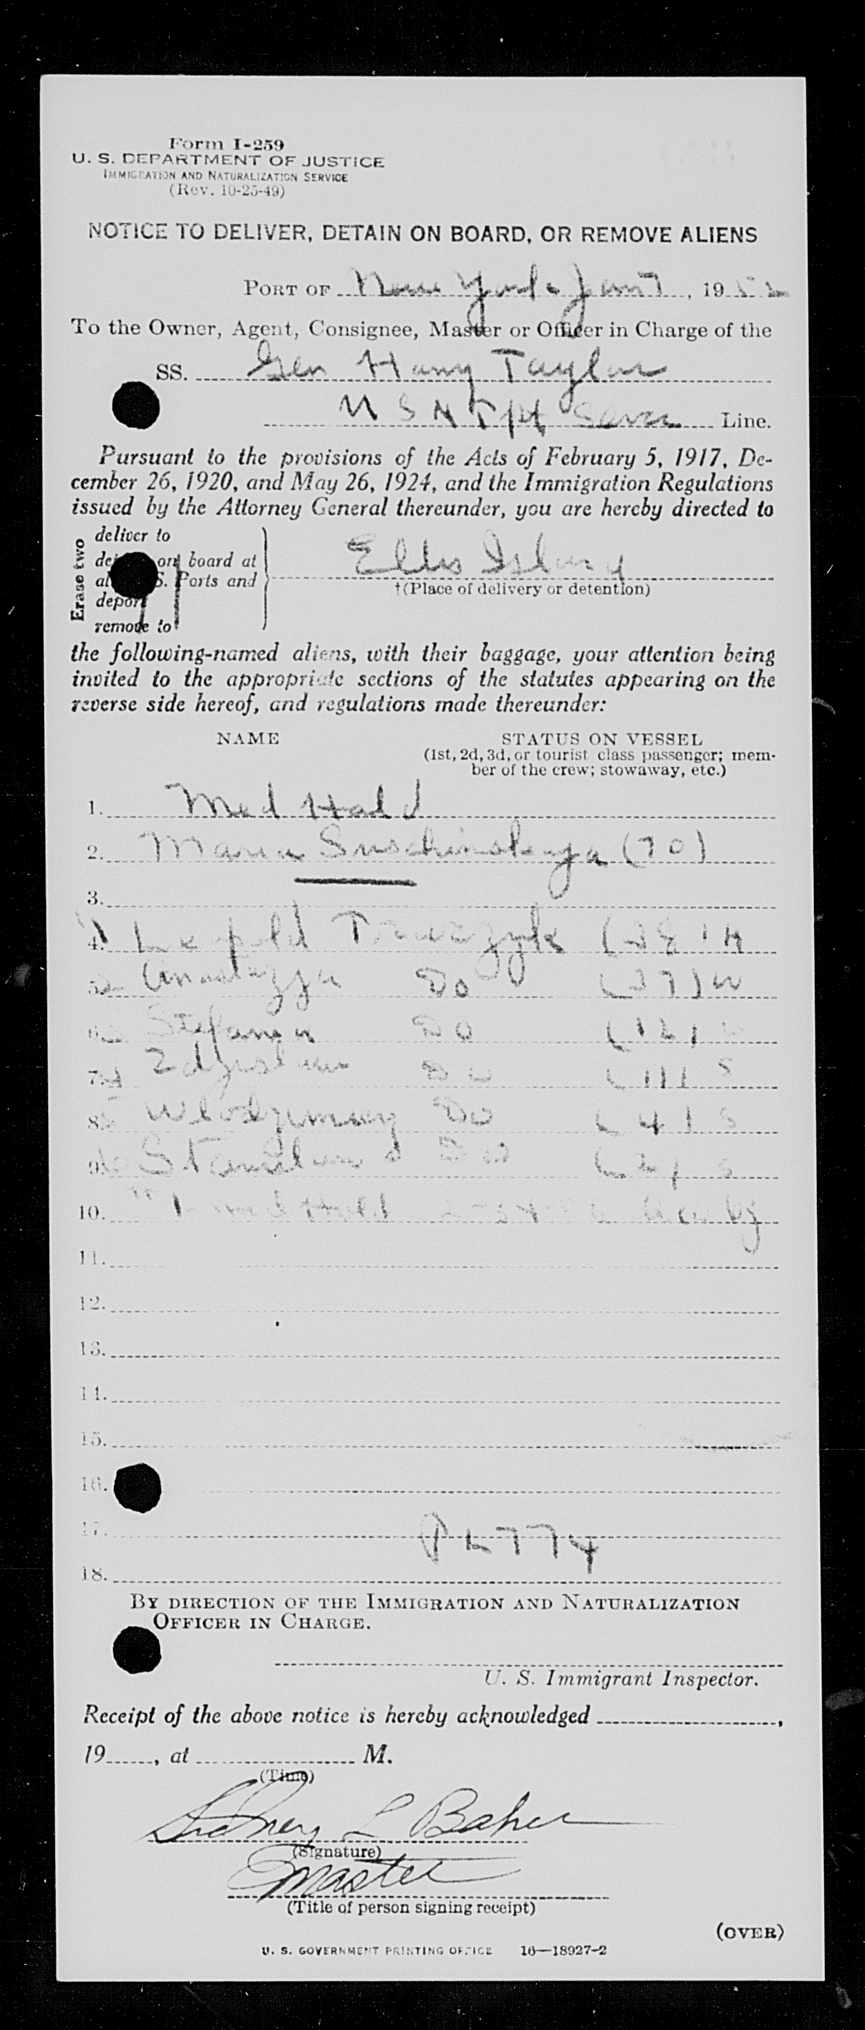 Form I-259
U. S. DEPARTMENT OF JUSTICE
IMMIGRATION AND NATURALIZATION SERVICE
(Rev. 10-25-49)
NOTICE TO DELIVER, DETAIN ON BOARD, OR REMOVE ALIENS
PORT OF New York Jan 7, 1952
To the Owner, Agent, Consignee, Master or Officer in Charge of the
SS. Gen Harry Taylor
U S N Line.
Pursuant to the provisions of the Acts of February 5, 1917, De-
cember 26, 1920, and May 26, 1924, and the Immigration Regulations
issued by the Attorney General thereunder, you are hereby directed to
Erase two
deliver to
on board at
S. Ports and
deport
remove to
Ellis Island
†(Place of delivery or detention)
the following-named aliens, with their baggage, your attention being
invited to the appropriate sections of the statutes appearing on the
reverse side hereof, and regulations made thereunder:
NAME STATUS ON VESSEL
(1st, 2d, 3d, or tourist class passenger; mem-
ber of the crew; stowaway, etc.)
1. Med Hold
2. Maria Suschinskaya (70)
3.
4. Leopold (38) H
5. Anastazja Do (37) W
6. Stefania Do (12)
7. Zdzislaw Do (11) S
8. Wlodzimierz Do (4) S
9. Stanislaw Do S
10. Med Hold
11.
12.
13.
14.
15.
16.
17. PL 774
18.
BY DIRECTION OF THE IMMIGRATION AND NATURALIZATION
OFFICER IN CHARGE.
U. S. Immigrant Inspector.
Receipt of the above notice is hereby acknowledged ,
19 , at M.
(Time)
Sidney L Baker
(Signature)
Master
(Title of person signing receipt)
(OVER)
U. S. GOVERNMENT PRINTING OFFICE 16—18927-2